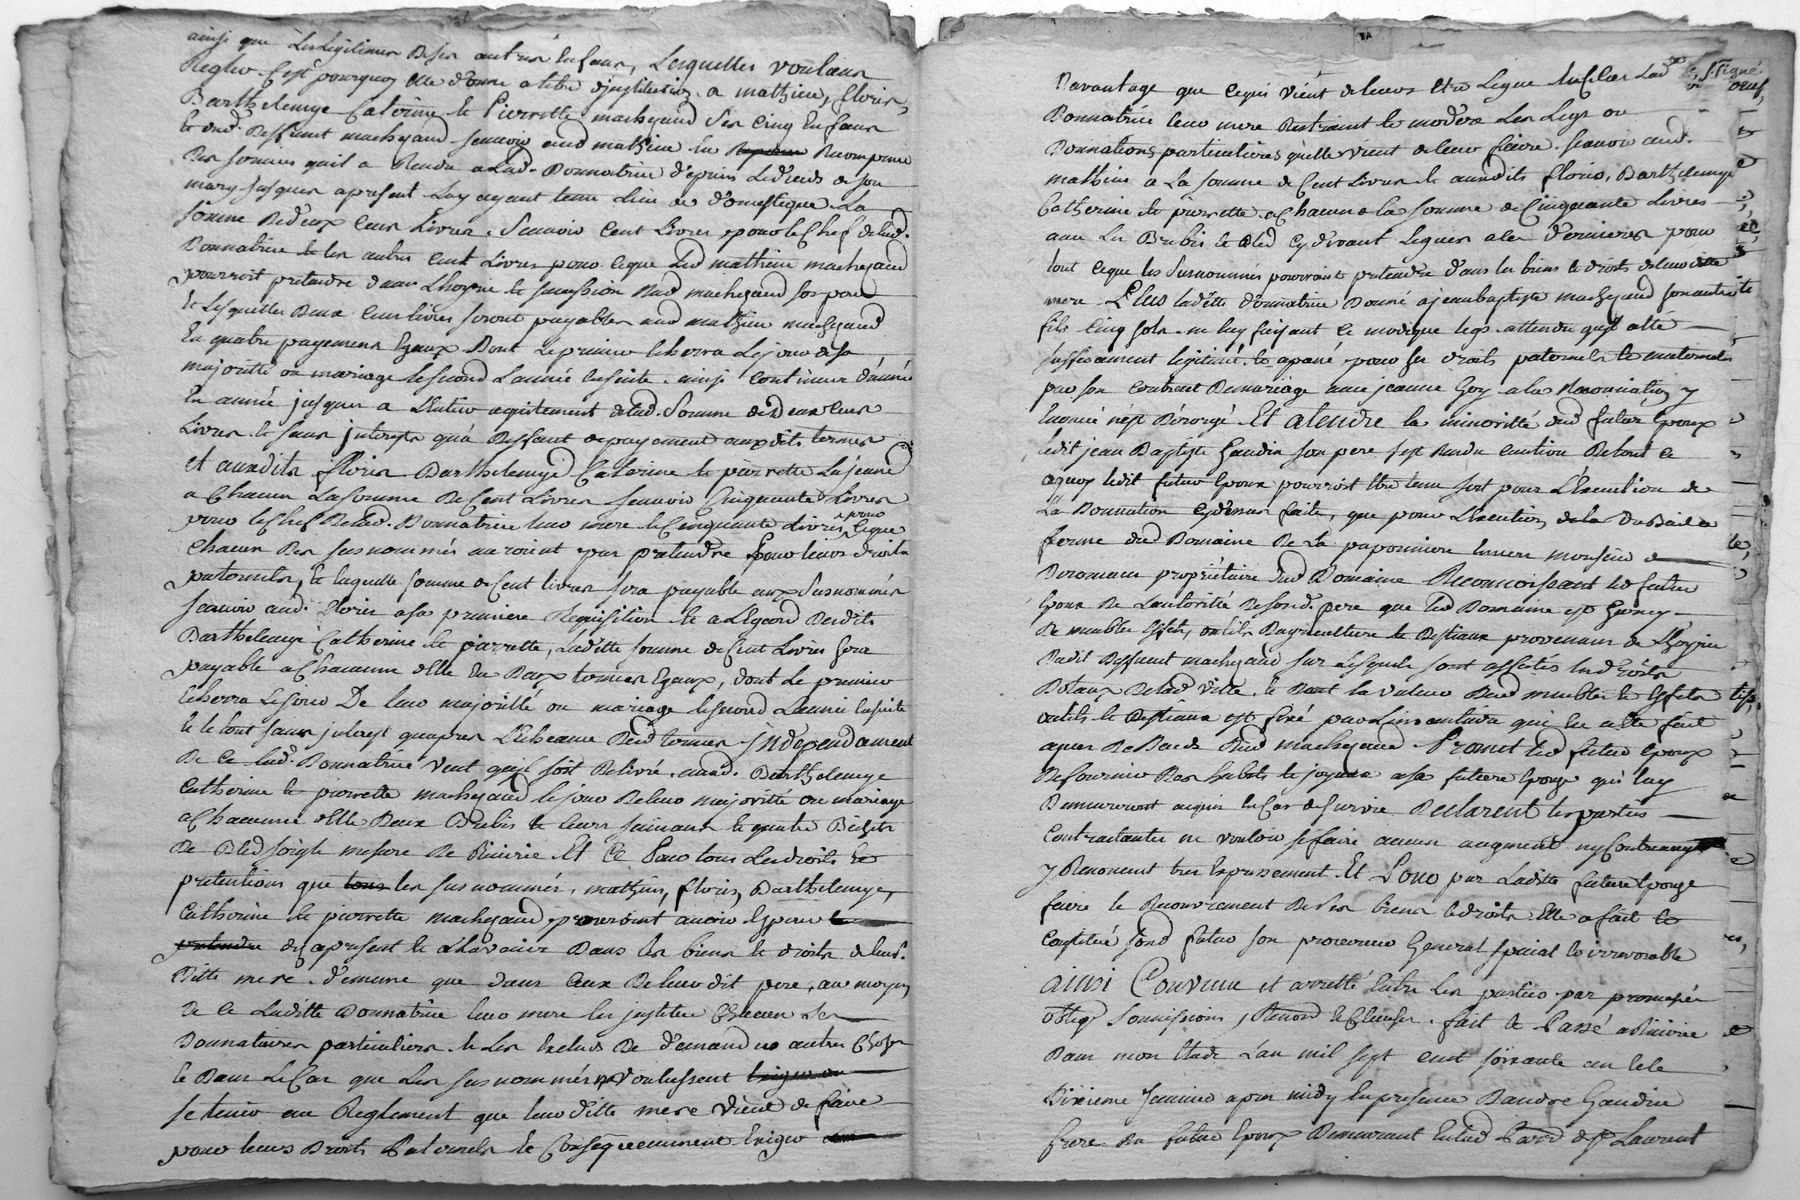 ainsi que les legitimes de ses autres enfans, lesquelles voulant
Regler c'est pourquoy elle donne a titre d'institution a mathieu, floris,
Barthelemye Catérine et Pierrette machezaud ses cinq enfans
et dud. deffunt machezaud scavoir aud mathieu en recompense
des soins quil a Rendu a lad. Donnatrice depuis le deceds de son
mary jusques apresent luy ayant tenu lieu de domestique La
somme de deux cens livres. Scavoir cent livres pour le chef de lad.
Donnatrice et les autres cent livres pour ceque led mathieu machezaud
pourroit pretendre dans lhoyrie et succession dud machezaud son pere
et lesquelles deux cens livres seront payables aud mathieu machezaud
En quatre payemens Egaux dont le premier echerra le jour de sa
majorité ou mariage le second l'année ensuite. ainsi continuer d'année
En année jusques a l'entier aquitement de lad. Somme de deux cens
livres et sans interests qu'a deffaut de payement auxdits termes
et auxdits floris Barthelemye Catérine et pierrette
a Chacun la somme de Cent Livres scavoir Cinquante Livres
pour le chef de lad. Donnatrice leur mere et Cinquante livres pour ceque
Chacun des susnommés auroient peu pretendre pour leurs droits
paternels, et laquelle somme de Cent livres sera payable aux susnommés
scavoir aud. floris a sa premiere Requisition et a Legard desdits
Barthelemye Catherine et pierrette, Laditte somme de Cent Livres sera
payable a Chacune d'elle en Deux termes Egaux, dont le premier
Echerra le jour De leur majorité ou mariage le second L'année ensuite
et le tout sans interest qu'apres L'Echeance desd termes Independament
De ce lad. Donnatrice veut quil soit delivré auxd. Barthelemye
Catherine et pierrette machezaud le jour de leur majorité ou mariage
a Chacune d'elle deux Brebis et leurs et quatre Bichets
De Bled soigle mesure de Et Ce Pour tous les droits et
pretentions que tous les susnommés, mathieu, floris, Barthelemye,
Catherine et pierrette machezaud pourroient avoir Esperer et
pretendre des apresent et a Lavenir Dans les biens et droits de leurs.
Ditte mere. dememe que dans ceux De leur dit pere, au moyen
De ce Laditte Donnatrice leur mere les institue Chacun ses
Donnataires particuliers et les exclus De demander autre Chose
et Dans le Cas que les susnommés ne voulussent
se tenir au Reglement que leur ditte mere vient de faire
pour leurs Droits Paternels et Consequemment Exiger
Davantage que cequi vient de leurs etre Legué En ce cas Lad
Donnatrice leur mere Restraint et modere Les Legs ou
Donnations particulieres qu'elle vient de leur faire. Scavoir aud.
mathieu a La somme de Cent Livres et auxdits floris, Barthelemye
Catherine et pierrette a Chacun la somme de Cinquante Livres
avec les Brebis et Bled cy devant leguées a ces dernieres pour
tout ceque les susnommés pourroient pretendre dans les biens et droits de leur ditte
mere Plus ladite donnatrice Donné a jean baptiste machezaud son autre
fils cinq sols. ne luy faisant ce modique legs attendu quil a été
suffisament legitimé et apané pour ses droits paternels et maternels
par son contract de mariage avec jeanne Goy a la Renonciation y
Enoncée n'est dérogé. Et atendre la minorité dud futur Epoux
ledit jean Baptiste Gaudin son pere sest Rendu caution de tout ce
aquoy ledit futur Epoux pourroit etre tenu soit pour L'Execution de
La Donnation cy dessus faite, que pour L'Execution de la Du Bail a
ferme dud Domaine De La paponniere Envers monsieur de
propriétaire dud Domaine Reconnoissant led futur
Epoux De L'autorité de sond. pere que led Domaine est Garny
De meubles Effets, outils d'agriculture et Bestiaux provenans de L'hoyrie
dudit Deffunt macheaud sur Lesquels sont affectés les droits
Dotaux de lad Vitte. et dont la valeur desd meubles et Effets
outils et Bestiaux est fixé par L'inventaire qui en a été fait
apres Deceds dud macheaud Promet led futur Epoux
de fournir Des habits et joyaux a sa future Epouse qui luy
Demeureront acquis En Cas de survie Declarent les parties
Contractantes ne vouloir se faire aucun augment ny Contreaugment
y Renoncent tres Expressement. Et Pour par Laditte future Epouse
faire le Recouvrement De ses biens et droits Elle a fait et
Constitué sond futur son procureur General special et irrevocable
Ainsi Convenu et arretté Entre Les parties par promesses
oblig. Soumissions, Renon. et Clauses. fait et Passé a
Dans mon Etude L'an mil sept cent soixante un et le
Dixieme Janvier apres midy En presence D'andre Gaudin
frere du futur Epoux Demeurant En lad Parr. de St Laurent